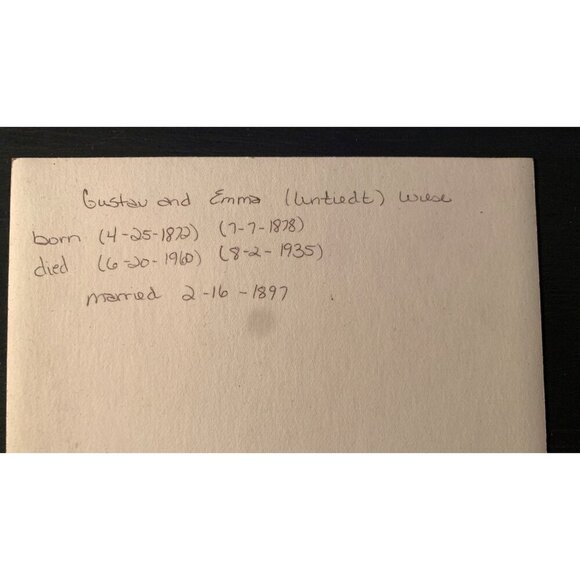 Gustav and Emma (Untiedt) Wiese
born (4-25-1872) (7-7-1878)
died (6-20-1960) (8-2-1935)
married 2-16-1897